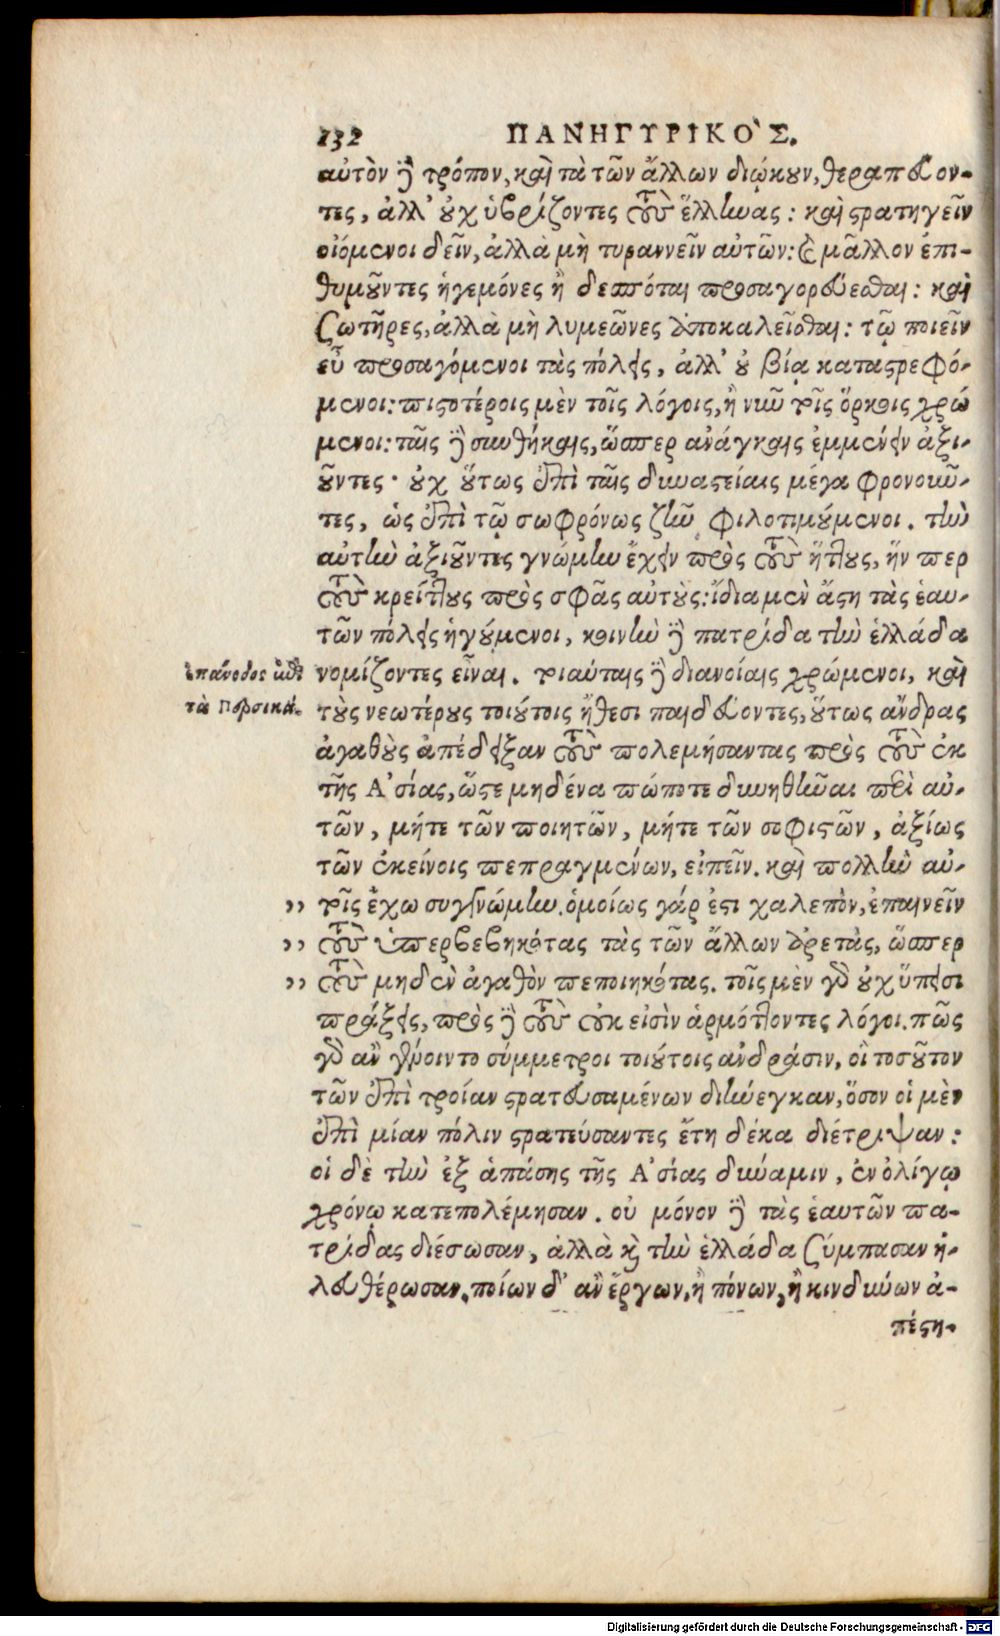 132 ΠΑΝΗΓΥΡΙΚΟ`Σ.
αὐτὸν ἢ τρόπον, καὶ τὰ τῶν ἄλλων διῴκουν, θεραπεύον-
τες, ἀλλ' οὐχ ὑβρίζοντες τοὺς ἕλληνας : καὶ στρατηγεῖν
οἰόμενοι δεῖν, ἀλλὰ μὴ τυραννεῖν αὐτῶν: καὶ μᾶλλον ἐπι-
θυμοῦντες ἡγεμόνες ἢ δεσπόται προσαγορεύεσθαι : καὶ
σωτῆρες, ἀλλὰ μὴ λυμεῶνες ἀποκαλεῖσθαι : τῷ ποιεῖν
εὖ προσαγόμενοι τὰς πόλεις, ἀλλ' οὐ βίᾳ καταστρεφό-
μενοι: πιστοτέροις μὲν τοῖς λόγοις, ἢ νῦν τοῖς ὅρκοις χρώ
μενοι: ταῖς δὲ συνθήκαις, ὥσπερ ἀνάγκαις ἐμμένειν ἀξι-
οῦντες· οὐχ οὕτως ἐπὶ ταῖς δυναστείαις μέγα φρονοῦν-
τες, ὡς ἐπὶ τῷ σωφρόνως ζῆν φιλοτιμούμενοι. τὴν
αὐτὴν ἀξιοῦντες γνώμην ἔχειν πρὸς τοὺς ἥττους, ἥν περ
τοὺς κρείττους πρὸς σφᾶς αὐτούς: ἴδια μὲν ἄστη τὰς ἑαυ-
τῶν πόλεις ἡγούμενοι, κοινὴν δὲ πατρίδα τὴν ἑλλάδα
ἐπάνοδος κατὰ νομίζοντες εἶναι. τοιαύταις δὲ διανοίαις χρώμενοι, καὶ
τὰ Περσικά. τοὺς νεωτέρους τοιούτοις ἤθεσι παιδεύοντες, οὕτως ἄνδρας
ἀγαθοὺς ἀπέδειξαν τοὺς πολεμήσαντας πρὸς τοὺς ἐκ
τῆς Α'σίας, ὥστε μηδένα πώποτε δυνηθῆναι περὶ αὐ-
τῶν, μήτε τῶν ποιητῶν, μήτε τῶν σοφιστῶν, ἀξίως
τῶν ἐκείνοις πεπραγμένων, εἰπεῖν. καὶ πολλὴν αὐ-
,, τοῖς ἔχω συγγνώμην. ὁμοίως γάρ ἐστι χαλεπὸν, ἐπαινεῖν
,, τοὺς ὑπερβεβηκότας τὰς τῶν ἄλλων ἀρετὰς, ὥσπερ
,, τοὺς μηδὲν ἀγαθὸν πεποιηκότας. τοῖς μὲν γὰρ οὐχ ὕπεισι
πράξεις, πρὸς δὲ τοὺς οὐκ εἰσὶν ἁρμόττοντες λόγοι. πῶς
γὰρ ἂν γένοιντο σύμμετροι τοιούτοις ἀνδράσιν, οἳ τοσοῦτον
τῶν ἐπὶ τροίαν στρατευσαμένων διήνεγκαν, ὅσον οἱ μὲν
ἐπὶ μίαν πόλιν στρατεύσαντες ἔτη δέκα διέτριψαν :
οἱ δὲ τὴν ἐξ ἁπάσης τῆς Α'σίας δύναμιν, ἐν ὀλίγῳ
χρόνῳ κατεπολέμησαν. οὐ μόνον δὲ τὰς ἑαυτῶν πα-
τρίδας διέσωσαν, ἀλλὰ καὶ τὴν ἑλλάδα σύμπασαν ἠ-
λευθέρωσαν. ποίων δ' ἂν ἔργων, ἢ πόνων, ἢ κινδύνων ἀ-
πέστη.
Digitalisierung gefördert durch die Deutsche Forschungsgemeinschaft - DFG